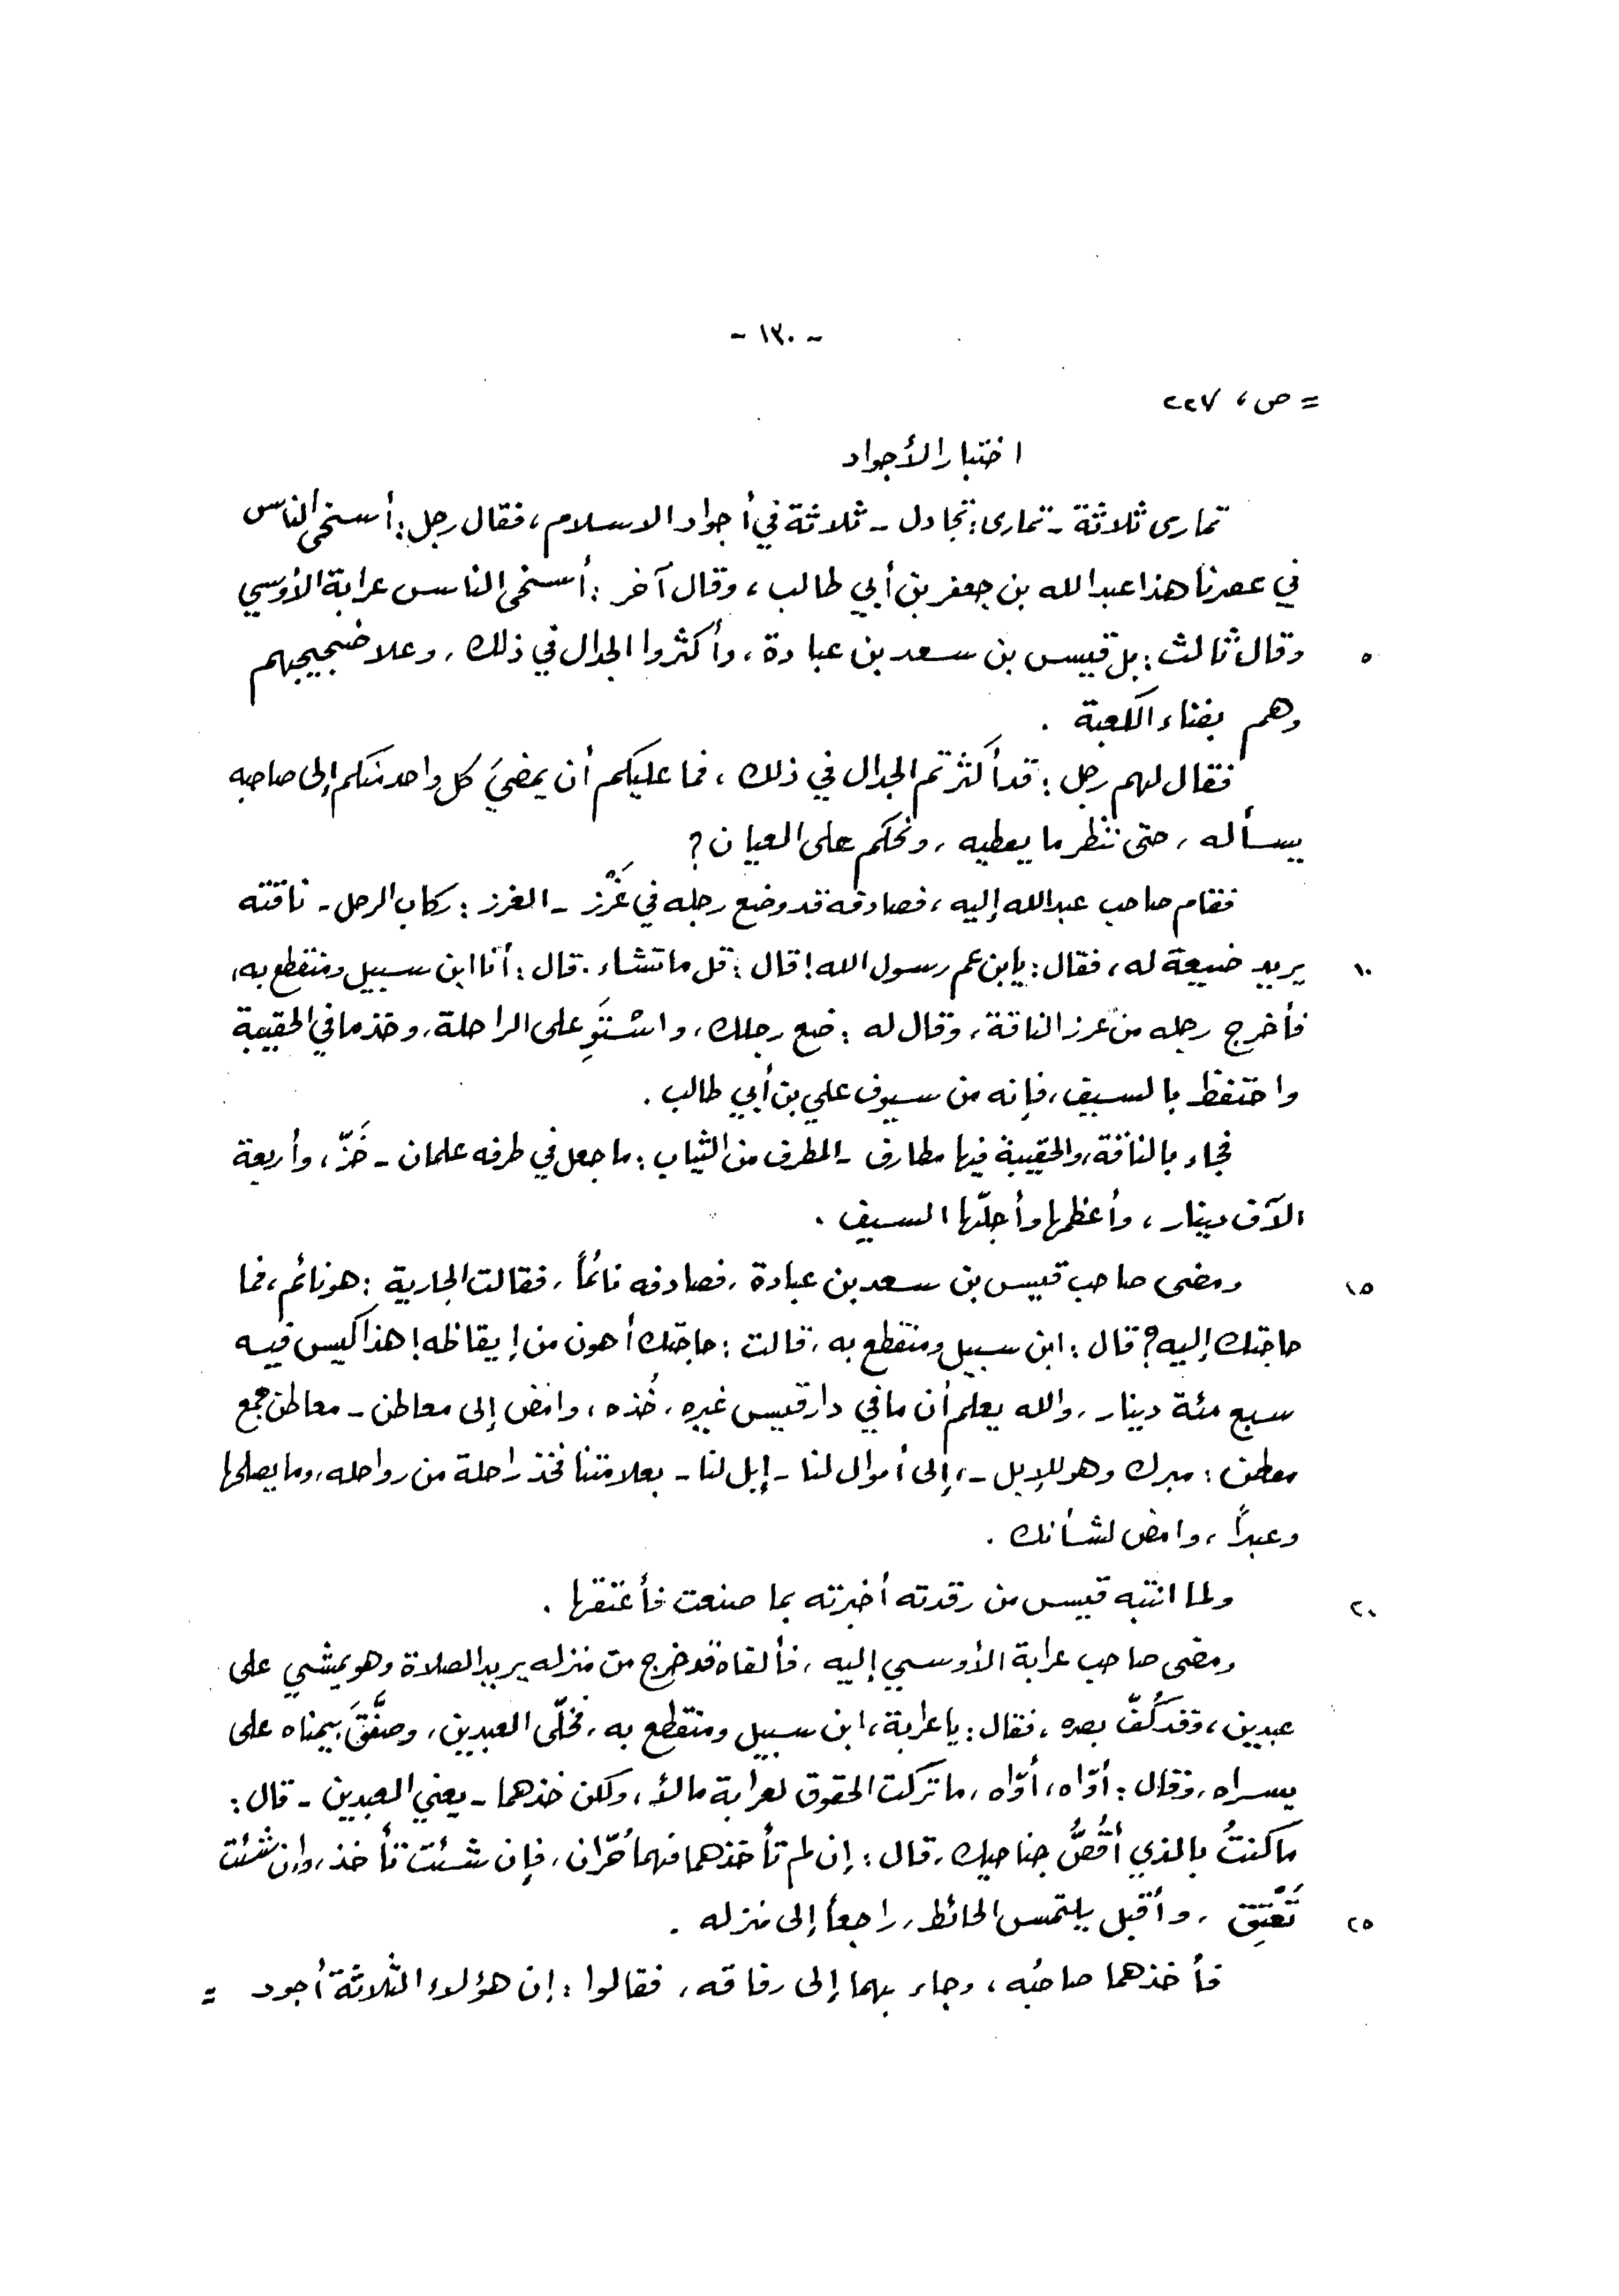 - ١٣٠ -
= ص ، ٢٢٧
اختبار الأجواد
تمارى ثلاثة - تمارى : تجادل - ثلاثة في أجواد الاسلام ، فقال رجل : أسخى الناس
في عصرنا هذا عبد الله بن جعفر بن أبي طالب ، وقال آخر : أسخى الناس عرابة الأوسي
٥ وقال ثالث : بل قيس بن سعد بن عبادة ، وأكثروا الجدال في ذلك ، وعلا ضجيجهم
وهم بفناء الكعبة .
فقال لهم رجل : قد أكثرتم الجدال في ذلك ، فما عليكم أن يمضيَ كل واحد منكم إلى صاحبه
يسأله ، حتى ننظر ما يعطيه ، ونحكم على العيان ؟
فقام صاحب عبد الله إليه ، فصادفه قد وضع رجله في غَرْز - الغرز : ركاب الرحل - ناقته
١٠ يريد ضيعة له ، فقال : يا بن عم رسول الله ! قال : قل ما تشاء . قال : أنا ابن سبيل ومنقطع به ،
فأخرج رجله من غرز الناقة ، وقال له : ضع رجلك ، واستَوِ على الراحلة ، وخذ ما في الحقيبة
واحتفظ بالسيف ، فإنه من سيوف علي بن أبي طالب .
فجاء بالناقة ، والحقيبة فيها مطارف - المطرف من الثياب : ما جعل في طرفه علمان - خَزّ ، وأربعة
آلاف دينار ، وأعظمها وأجلّها السيف .
١٥ ومضى صاحب قيس بن سعد بن عبادة ، فصادفه نائماً ، فقالت الجارية : هو نائم ، فما
حاجتك إليه ؟ قال : ابن سبيل ومنقطع به ، قالت : حاجتك أهون من إيقاظه ! هذا كيس فيه
سبع مئة دينار ، والله يعلم أن ما في دار قيس غيره ، خُذه ، وامض إلى معاطن - معاطن جمع
معطن : مبرك وهو للإبل - ، إلى أموال لنا - إبل لنا - بعلامتنا فخذ راحلة من رواحله ، وما يصلحها
وعبداً ، وامض لشأنك .
٢٠ ولما انتبه قيس من رقدته أخبرته بما صنعت فأعتقها .
ومضى صاحب عرابة الأوسي إليه ، فألفاه قد خرج من منزله يريد الصلاة وهو يمشي على
عبدين ، وقد كُفّ بصره ، فقال : يا عرابة ، ابن سبيل ومنقطع به ، فخلّى العبدين ، وصفَّقَ بيمناه على
يسراه ، وقال : أوّاه ، أوّاه ، ما تركت الحقوق لعرابة مالاً ، ولكن خذهما - يعني العبدين - قال :
ما كنتُ بالذي أقُصُّ جناحيك ، قال : إن لم تأخذهما فهما حُرّان ، فإن شئت تأخذ ، وإن شئت
٢٥ تَعْتِق ، وأقبل يلتمس الحائط ، راجعاً إلى منزله .
فأخذهما صاحبُه ، وجاء بهما إلى رفاقه ، فقالوا : إن هؤلاء الثلاثة أجود =